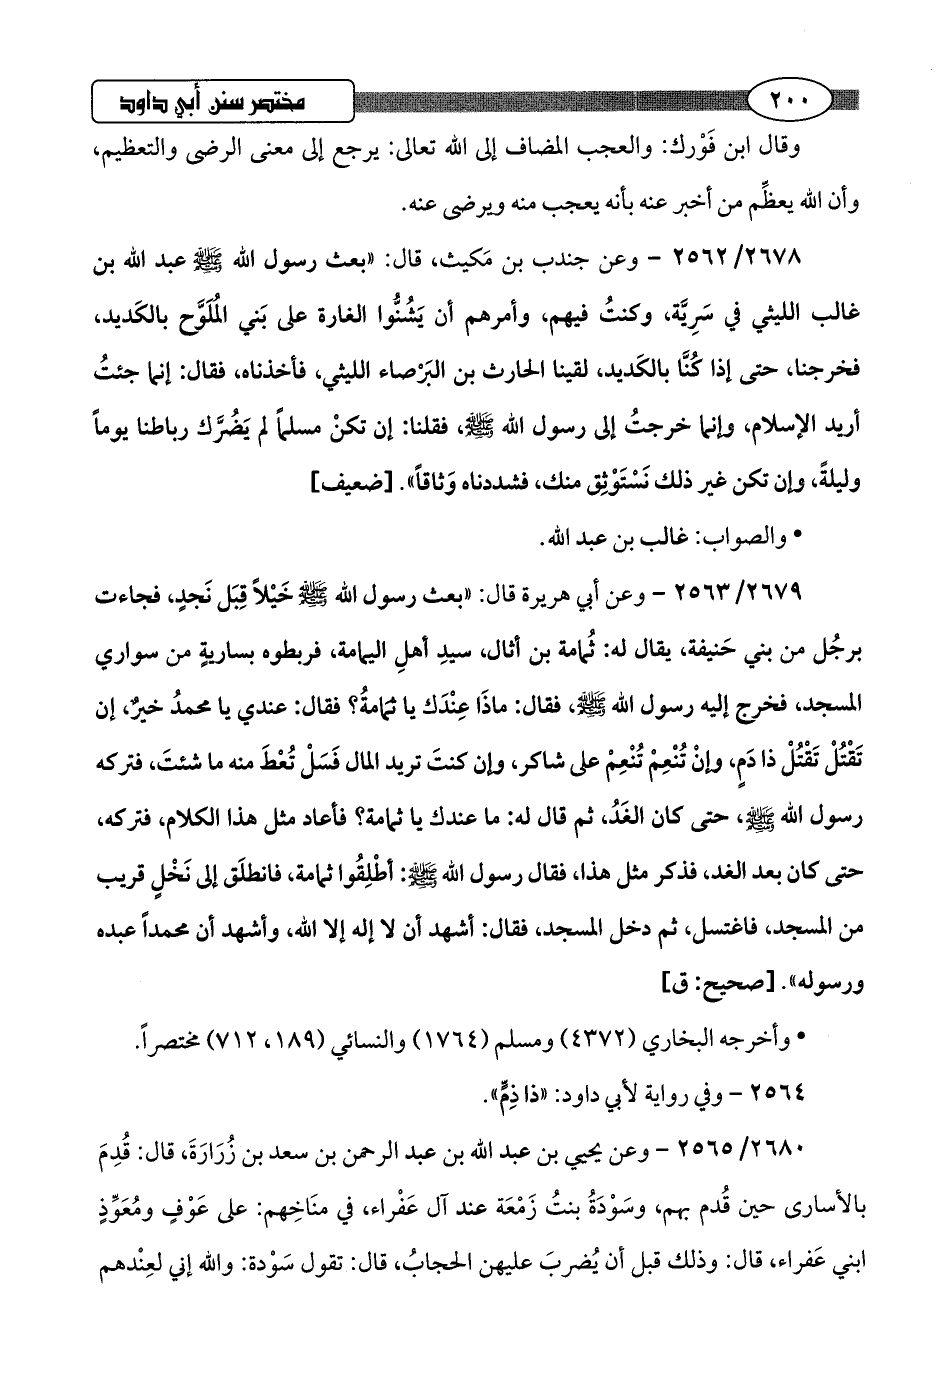 ٢٠٠ مختصر سنن أبي داود
وقال ابن فَوْرك: والعجب المضاف إلى الله تعالى: يرجع إلى معنى الرضى والتعظيم،
وأن الله يعظِّم من أخبر عنه بأنه يعجب منه ويرضى عنه.
٢٥٦٢/٢٦٧٨ - وعن جندب بن مَكيث، قال: «بعث رسول الله ﷺ عبد الله بن
غالب الليثي في سَرِيَّة، وكنتُ فيهم، وأمرهم أن يَشُنُّوا الغارة على بَني المُلَوَّح بالكَديد،
فخرجنا، حتى إذا كُنَّا بالكَديد، لقينا الحارث بن البَرْصاء الليثي، فأخذناه، فقال: إنما جئتُ
أريد الإسلام، وإنما خرجتُ إلى رسول الله ﷺ، فقلنا: إن تكنْ مسلماً لم يَضُرَّك رباطنا يوماً
وليلةً، وإن تكن غير ذلك نَسْتَوْثِق منك، فشددناه وَثاقاً». [ضعيف]
• والصواب: غالب بن عبد الله.
٢٥٦٣/٢٦٧٩ - وعن أبي هريرة قال: «بعث رسول الله ﷺ خَيْلاً قِبَل نَجدٍ، فجاءت
برجُل من بني حَنيفة، يقال له: ثُمامة بن أثال، سيدِ أهلِ اليمامة، فربطوه بساريةٍ من سواري
المسجد، فخرج إليه رسول الله ﷺ، فقال: ماذَا عِنْدَك يا ثمامةُ؟ فقال: عندي يا محمدُ خيرٌ، إن
تَقْتُلْ تَقْتُلْ ذا دَمٍ، وإنْ تُنْعِمْ تُنْعِمْ على شاكر، وإن كنتَ تريد المال فَسَلْ تُعْطَ منه ما شئتَ، فتركه
رسول الله ﷺ، حتى كان الغَدُ، ثم قال له: ما عندك يا ثمامة؟ فأعاد مثل هذا الكلام، فتركه،
حتى كان بعد الغد، فذكر مثل هذا، فقال رسول الله ﷺ: أطْلِقُوا ثمامة، فانطلَق إلى نَخْلٍ قريب
من المسجد، فاغتسل، ثم دخل المسجد، فقال: أشهد أن لا إله إلا الله، وأشهد أن محمداً عبده
ورسوله». [صحيح: ق]
• وأخرجه البخاري (٤٣٧٢) ومسلم (١٧٦٤) والنسائي (١٨٩، ٧١٢) مختصراً.
٢٥٦٤ - وفي رواية لأبي داود: «ذا ذِمٍّ».
٢٥٦٥/٢٦٨٠ - وعن يحيى بن عبد الله بن عبد الرحمن بن سعد بن زُرَارَةَ، قال: قُدِمَ
بالأسارى حين قُدم بهم، وسَوْدَةُ بنتُ زَمْعَة عند آل عَفْراء، في مناخِهم: على عَوْفٍ ومُعَوِّذٍ
ابني عَفراء، قال: وذلك قبل أن يُضربَ عليهن الحجابُ، قال: تقول سَوْدة: والله إني لعِنْدهم